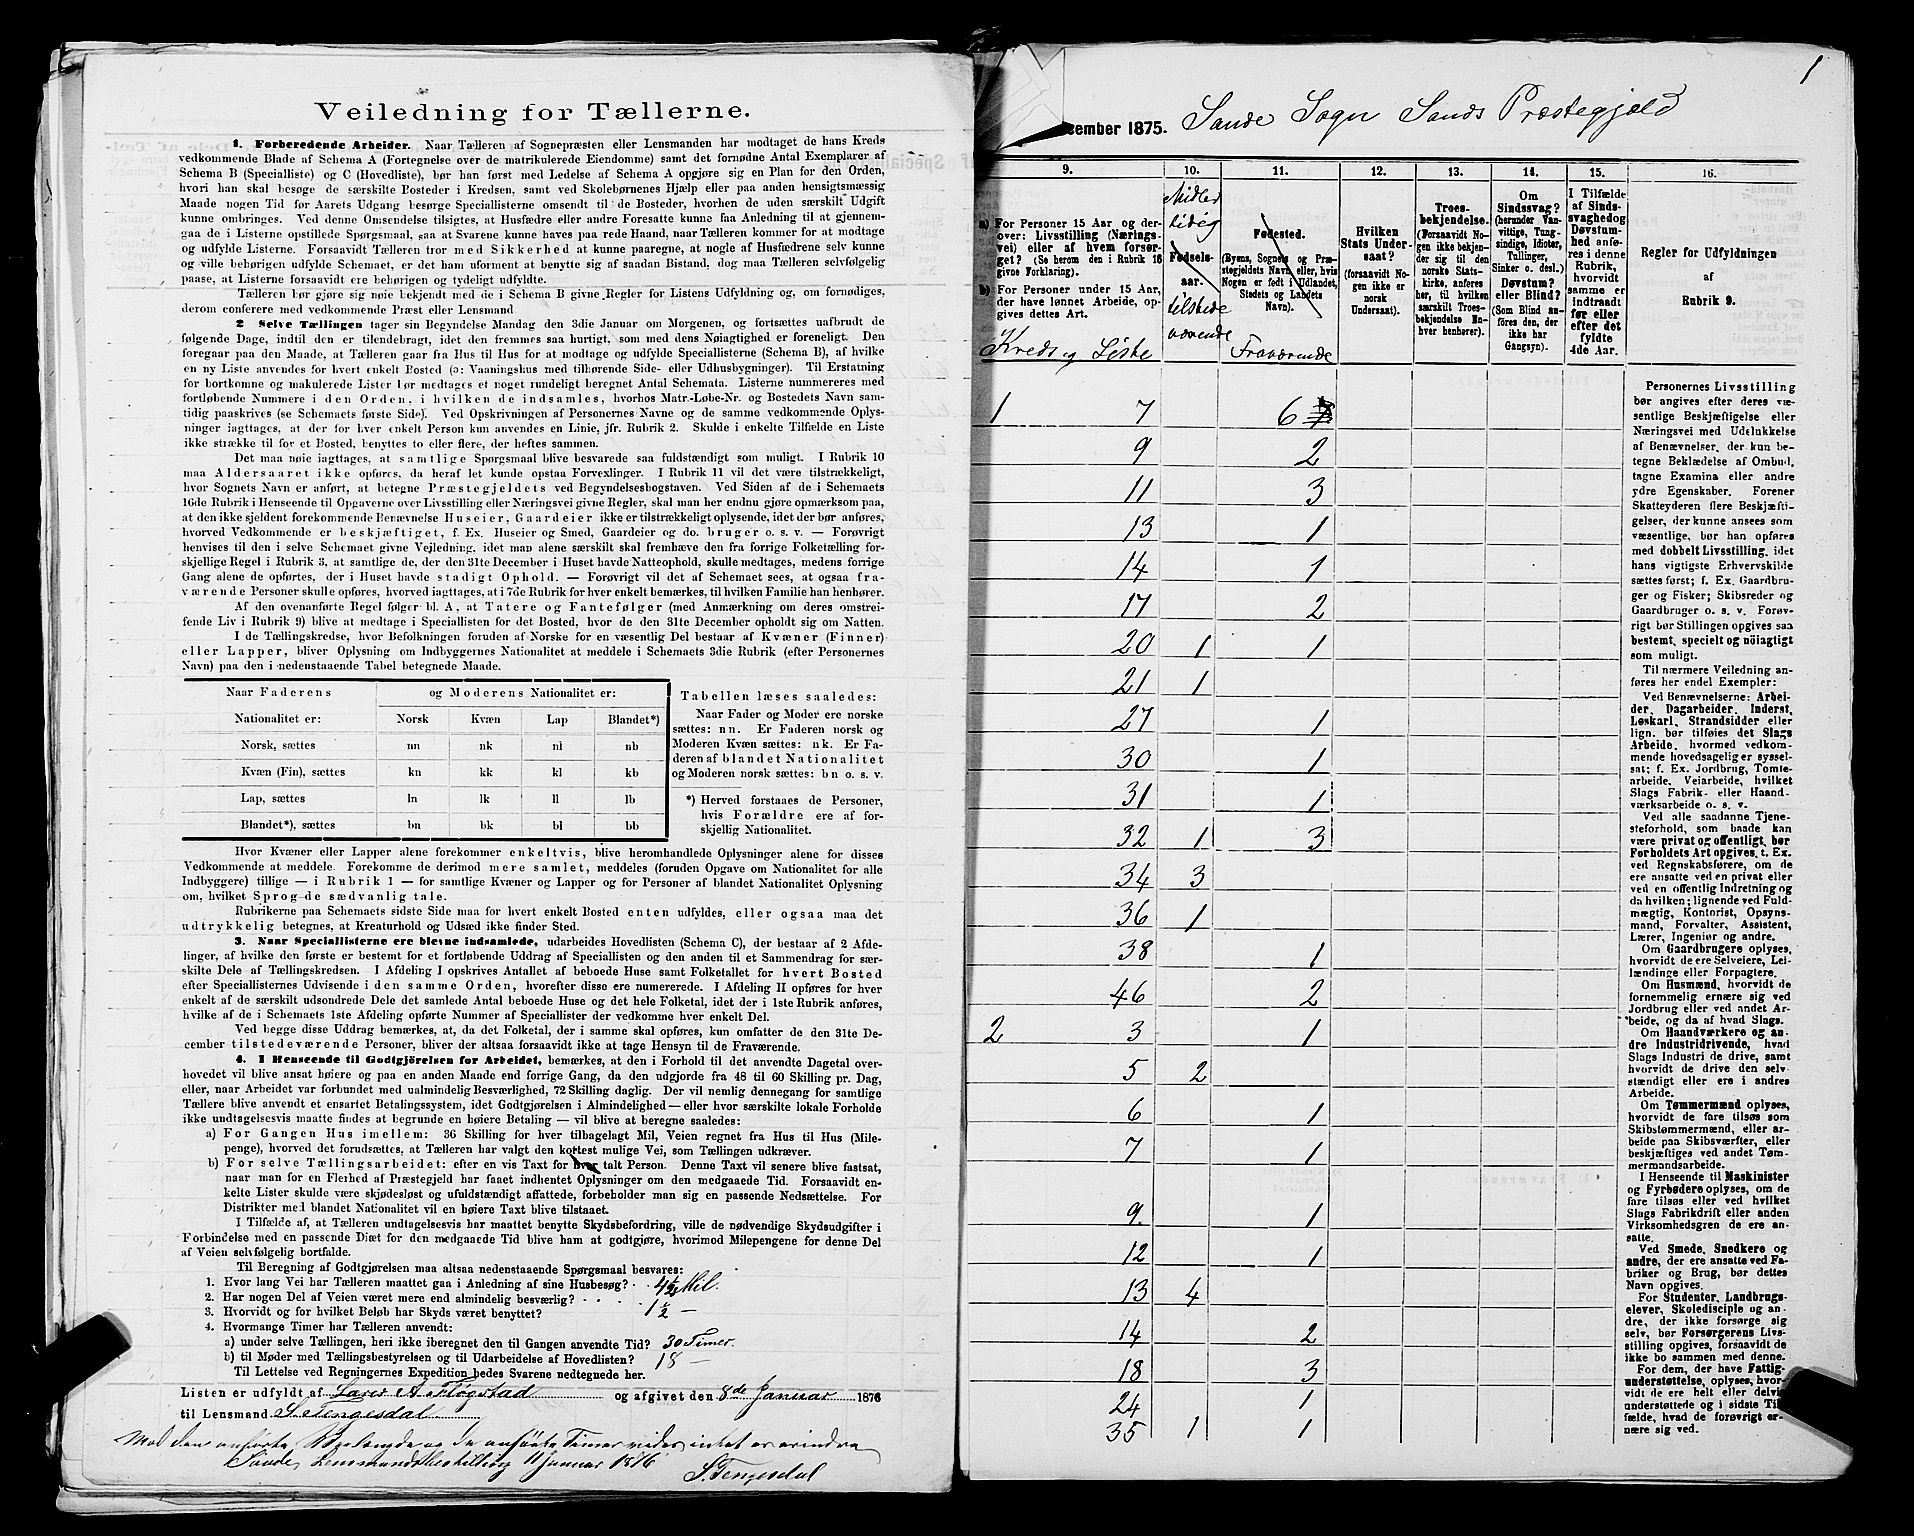 Veiledning for Tællerne.
1. Forberedende Arbeider. Naar Tælleren af Sognepræsten eller Lensmanden har modtaget de hans Kreds
vedkommende Blade af Schema A (Fortegnelse over de matrikulerede Eiendomme) samt det fornødne Antal Exemplarer af
Schema B (Specialliste) og C (Hovedliste), bør han først med Ledelse af Schema A opgjøre sig en Plan for den Orden,
hvori han skal besøge de særskilte Bosteder i Kredsen, samt ved Skolebørnenes Hjælp eller paa anden hensigtsmæssig
Maade nogen Tid før Aarets Udgang besørge Speciallisterne omsendt til de Bosteder, hvorhen de uden særskilt Udgift
kunne ombringes. Ved denne Omsendelse tilsigtes, at Husfædre eller andre Foresatte kunne faa Anledning til at gjennem-
gaa de i Listerne opstillede Spørgsmaal, saa at Svarene kunne haves paa rede Haand, naar Tælleren kommer for at modtage
og udfylde Listerne. Forsaavidt Tælleren tror med Sikkerhed at kunne paaregne, at nogle af Husfædrene selv kunne
og ville behørigen udfylde Schemaet, er det ham uforment at benytte sig af saadan Bistand, dog maa Tælleren selvfølgelig
paase, at Listerne forsaavidt ere behørigen og tydeligt udfyldte.
Tælleren bør gjøre sig nøie bekjendt med de i Schema B givne Regler for Listens Udfyldning og, om fornødiges,
derom conferere med vedkommende Præst eller Lensmand
2 Selve Tællingen tager sin Begyndelse Mandag den 3die Januar om Morgenen, og fortsættes uafbrudt de
følgende Dage, indtil den er tilendebragt, idet den fremmes saa hurtigt, som med dens Nøiagtighed er foreneligt. Den
foregaar paa den Maade, at Tælleren gaar fra Hus til Hus for at modtage og udfylde Speciallisterne (Schema B), af hvilke
en ny Liste anvendes for hvert enkelt Bosted (ɔ: Vaaningshus med tilhørende Side- eller Udhusbygninger). Til Erstatning
for bortkomne og makulerede Lister bør medtages et noget rundeligt beregnet Antal Schemata. Listerne nummereres med
fortløbende Nummere i den Orden, i hvilken de indsamles, hvorhos Matr.-Løbe-Nr. og Bostedets Navn sam-
tidig paaskrives (se Schemaets første Side). Ved Opskrivningen af Personernes Navne og de samme vedkommende Oplys-
ninger iagttages, at der for hver enkelt Person kun anvendes en Linie, jfr. Rubrik 2. Skulde i enkelte Tilfælde en Liste
ikke strække til for et Bosted, benyttes to eller flere, der heftes sammen.
Det maa nøie iagttages, at samtlige Spørgsmaal blive besvarede saa fuldstændigt som muligt. I Rubrik 10
maa Aldersaaret ikke opføres, da heraf let kunde opstaa Forvexlinger. I Rubrik 11 vil det være tilstrækkeligt,
hvor Sognets Navn er anført, at betegne Præstegjeldets ved Begyndelsesbogstaven. Ved Siden af de i Schemaets
16de Rubrik i Henseende til Opgaverne over Livsstilling eller Næringsvei givne Regler, skal man her endnu gjøre opmærksom paa,
at den ikke sjeldent forekommende Benævnelse Huseier, Gaardeier ikke er tilstrækkeligt oplysende, idet der bør anføres,
hvorved Vedkommende er beskjæftiget, f. Ex. Huseier og Smed, Gaardeier og do. bruger o. s. v. — Forøvrigt
henvises til den i selve Schemaet givne Vejledning, idet man alene særskilt skal fremhæve den fra forrige Folketælling for-
skjellige Regel i Rubrik 3, at samtlige de, der den 31te December i Huset havde Natteophold, skulle medtages, medens forrige
Gang alene de opførtes, der i Huset havde stadigt Ophold. — Forøvrigt vil det af Schemaet sees, at ogsaa fra-
værende Personer skulle opføres, hvorved iagttages, at i 7de Rubrik for hver enkelt bemærkes, til hvilken Familie han henhører.
Af den ovenanførte Regel følger bl. A, at Tatere og Fantefølger (med Anmærkning om deres omstrei-
fende Liv i Rubrik 9) blive at medtage i Speciallisten for det Bosted, hvor de den 31te December opholdt sig om Natten.
I de Tællingskredse, hvor Befolkningen foruden af Norske for en væsentlig Del bestaar af Kvæner (Finner)
eller Lapper, bliver Oplysning om Indbyggernes Nationalitet at meddele i Schemaets 3die Rubrik (efter Personernes
Navn) paa den i nedenstaaende Tabel betegnede Maade.
Naar Faderens og Moderens Nationalitet er:
Nationalitet er: Norsk Kvæn Lap Blandet*)
Norsk, sættes nn nk nl nb
Kvæn (Fin), sættes kn kk kl kb
Lap, sættes ln lk ll lb
Blandet*), sættes bn bk bl bb
Tabellen læses saaledes:
Naar Fader og Moder ere norske
sættes: nn. Er Faderen norsk og
Moderen Kvæn sættes: nk. Er Fa-
deren af blandet Nationalitet
og Moderen norsk sættes: bn o. s. v.
*) Herved forstaaes de Personer,
hvis Forældre ere af for-
skjellig Nationalitet.
Hvor Kvæner eller Lapper alene forekommer enkeltvis, blive heromhandlede Oplysninger alene for disses
Vedkommende at meddele. Forekomme de derimod mere samlet, meddeles (foruden Opgave om Nationalitet for alle
Indbyggere) tillige — i Rubrik 1 — for samtlige Kvæner og Lapper og for Personer af blandet Nationalitet Oplysning
om, hvilket Sprog de sædvanlig tale.
Rubrikerne paa Schemaets sidste Side maa for hvert enkelt Bosted enten udfyldes, eller ogsaa maa det
udtrykkelig betegnes, at Kreaturhold og Udsæd ikke finder Sted.
3. Naar Speciallisterne ere blevne indsamlede, udarbeides Hovedlisten (Schema C), der bestaar af 2 Afde-
linger, af hvilke den første er bestemt for et fortløbende Uddrag af Speciallisten og den anden til et Sammendrag for sær-
skilte Dele af Tællingskredsen. I Afdeling I opskrives Antallet af beboede Huse samt Folketallet for hvert Bosted
efter Speciallisternes Udvisende i den samme Orden, hvorefter disse ere numererede. I Afdeling II opføres for hver
enkelt af de særskilt udsondrede Dele det samlede Antal beboede Huse og det hele Folketal, idet der i 1ste Rubrik anføres,
hvilke af de i Schemaets 1ste Afdeling opførte Nummer af Speciallister der vedkomme hver enkelt Del.
Ved begge disse Uddrag bemærkes, at, da det Folketal, der i samme skal opføres, kun omfatter de den 31te De-
cember tilstedeværende Personer, bliver der altsaa forsaavidt ikke at tage Hensyn til de Fraværende.
4. I Henseende til Godtgjörelsen for Arbeidet, bemærkes, at den i Forhold til det anvendte Dagetal over-
hovedet vil blive ansat høiere og paa en anden Maade end forrige Gang, da den udgjorde fra 48 til 60 Skilling pr. Dag,
eller, naar Arbeidet var forbundet med ualmindelig Besværlighed, 72 Skilling daglig. Der vil nemlig dennegang for samtlige
Tællere blive anvendt et ensartet Betalingssystem, idet Godtgjørelsen i Almindelighed — eller hvor særskilte lokale Forholde
ikke undtagelsesvis maatte findes at begrunde en høiere Betaling — vil blive at beregne saaledes:
a) For Gangen Hus imellem: 36 Skilling for hver tilbagelagt Mil, Veien regnet fra Hus til Hus (Mile-
penge), hvorved det forudsættes, at Tælleren har valgt den kortest mulige Vei, som Tællingen udkræver.
b) For selve Tællingsarbeidet: efter en vis Taxt for hver talt Person. Denne Taxt vil senere blive fastsat,
naar man for en Flerhed af Præstegjeld har faaet indhentet Oplysninger om den medgaaede Tid. Forsaavidt en-
kelte Lister skulde være skjødesløst og ufuldstændigt affattede, forbeholder man sig en passende Nedsættelse. For
Distrikter med blandet Nationalitet vil en høiere Taxt blive tilstaaet.
I Tilfælde af, at Tælleren undtagelsesvis har maattet benytte Skydsbefordring, ville de nødvendige Skydsudgifter i
Forbindelse med en passende Diæt for den medgaaede Tid blive ham at godtgjøre, hvorimod Milepengene for denne Del
af Veien selvfølgelig bortfalde.
Til Beregning af Godtgjørelsen maa altsaa nedenstaaende Spørgsmaal besvares:
1. Hvor lang Vei har Tælleren maattet gaa i Anledning af sine Husbesøg? 4½ Mil.
2. Har nogen Del af Veien været mere end almindelig besværlig? 1½ —
3. Hvorvidt og for hvilket Beløb har Skyds været benyttet?
4. Hvormange Timer har Tælleren anvendt:
a) under selve Tællingen, heri ikke iberegnet den til Gangen anvendte Tid? 30 Timer.
b) til Møder med Tællingsbestyrelsen og til Udarbeidelse af Hovedlisten? 18 —
Til Lettelse ved Regningernes Expedition bedes Svarene nedtegnede her.
Listen er udfyldt af Lars A. Fløgstad og afgivet den 8de Januar 1876
til Lensmand S. Tengesdal
Mod den anførte Veilængde og de anførte Timer vides intet at erindre
Sande Lensmandsbestilling 11 Januar 1876
S. Tengesdal
1
cember 1875. Sande Sogn Sands Præstegjeld
9. 10. 11. 12. 13. 14. 15. 16.
a) For Personer 15 Aar og der-
over: Livsstilling (Nærings-
vei) eller af hvem forsør-
get? (Se herom den i Rubrik 16
givne Forklaring).
b) For Personer under 15 Aar,
der have lønnet Arbeide, op-
gives dettes Art.
Kreds og Liste
Midler
tidig
Fødsels-
aar.
tilstede
værende
Fødested.
(Byens, Sognets og Præ-
stegjeldets Navn eller, hvis
Nogen er født i Udlandet,
Stedets og Landets
Navn).
Fraværende
Hvilken
Stats Under-
saat?
(forsaavidt No-
gen ikke er
norsk
Undersaat).
Troes-
bekjendelse.
(Forsaavidt No-
gen ikke bekjen-
der sig til den
norske Stats-
kirke, anføres
her, til hvilken
særskilt Troes-
bekjendelse En-
hver henhører).
Om
Sindssvag?
(herunder Van-
vittige, Tung-
sindige, Idioter,
Tullinger,
Sinker o. desl.)
Døvstum?
eller Blind?
(Som Blind an-
føres den, der
ikke har
Gangsyn).
I Tilfælde
af Sinds-
svaghed og
Døvstum-
hed anfø-
res i denne
Rubrik,
hvorvidt
samme er
indtraadt
før eller
efter det
fyldte
4de Aar.
Regler for Udfyldningen
af
Rubrik 9.
1 7 6
9 2
11 3
13 1
14 1
17 2
20 1 1
21 1
27 1
30 1
31 1
32 1 3
34 3
36 1
38 1
46 2
2 3 1
5 2
6 1
7 1
9. 1
12 1
13 4
14 2
18 3
24 1
35 1 1
Personernes Livsstilling
bør angives efter deres væ-
sentlige Beskjæftigelse eller
Næringsvei med Udelukkelse
af Benævnelser, der kun be-
tegne Beklædelse af Ombud,
tagne Examina eller andre
ydre Egenskaber. Forener
Skatteyderen flere Beskjæfti-
gelser, der kunne ansees som
væsentlige, bør han opføres
med dobbelt Livsstilling, idet
hans vigtigste Erhvervskilde
sættes først; f. Ex. Gaardbru-
ger og Fisker; Skibsreder og
Gaardbruger o. s. v. Forøv-
rigt bør Stillingen opgives saa
bestemt, specielt og nöiagtigt
som muligt.
Til nærmere Veiledning an-
føres her endel Exempler:
Ved Benævnelserne: Arbei-
der, Dagarbeider, Inderst,
Løskarl, Strandsidder eller
lign. bør tilføies det Slags
Arbeide, hvormed vedkom-
mende hovedsagelig er syssel-
sat; f. Ex. Jordbrug, Tomte-
arbeide, Veiarbeide, hvilket
Slags Fabrik- eller Haand-
værksarbeide o. s. v.
Ved alle saadanne Tjene-
steforhold, som baade kan
være privat og offentligt, bør
Forholdets Art opgives, t. Ex.
ved Regnskabsførere, om de
ere ansatte ved en privat eller
ved en offentlig Indretning og
da hvilken; lignende ved Fuld-
mægtig, Kontorist, Opsyns-
mand, Forvalter, Assistent,
Lærer, Ingeniør og andre.
Om Gaardbrugere oplyses,
hvorvidt de ere Selveiere, Lei-
lændinge eller Forpagtere.
Om Husmænd, hvorvidt de
fornemmelig ernære sig ved
Jordbrug eller ved andet Ar-
beide, og da af hvad Slags.
Om Haandværkere og an-
dre Industridrivende, hvad
Slags Industri de drive, samt
hvorvidt de drive den selv-
stændigt eller ere i andres
Arbeide.
Om Tømmermænd oplyses,
hvorvidt de fare tilsøs som
Skibstømmermænd, eller ar-
beide paa Skibsværfter, eller
beskjæftiges ved andet Tøm-
mermandsarbeide.
I Henseende til Maskinister
og Fyrbødere oplyses, om de
fare tilsøs eller ved hvilket
Slags Fabrikdrift eller anden
Virksomhedsgren de ere an-
satte.
Ved Smede, Snedkere og
andre, der ere ansatte ved Fa-
briker og Brug, bør dettes
Navn opgives.
For Studenter, Landbrugs-
elever, Skoledisciple og an-
dre, der ikke forsørge sig
selv, bør Forsørgerens Livs-
stilling opgives, forsaavidt de
ikke bo sammen med denne.
For dem, der have Fattig-
understøttelse, oplyses, hvor-
vidt de ere helt eller delvis
understøttede og i sidste Til-
fælde, hvad de forøvrigt er-
nære sig ved.